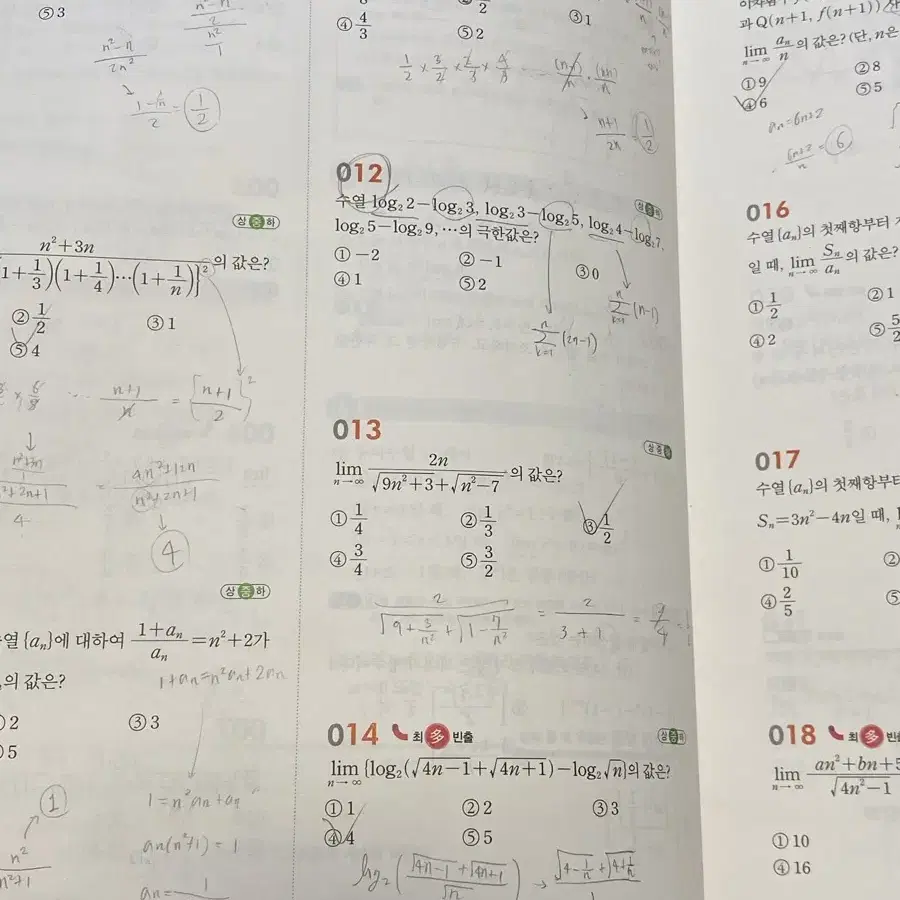 ⑤ 3
n²-n / 2n²
1-1/n / 2 = 1/2
상 중 하
n²+3n
1+1/3)(1+1/4)…(1+1/n)}² 의 값은?
② 1/2
③ 1
⑤ 4
n+1 / n = {n+1 / 2}²
4n²+12n / n²+2n+1
4
상 중 하
수열 {aₙ}에 대하여 1+aₙ / aₙ = n²+2가
의 값은?
1+aₙ=n²aₙ+2aₙ
② 2
③ 3
⑤ 5
1=n²aₙ+aₙ
①
aₙ(n²+1)=1
n² / n²+1
aₙ=1
④ 4/3
⑤ 2
③ 1
1/2 × 3/2 × 2/3 × 4/3 …
n+1 / 2n
1/2
012
상 중 하
수열 log₂2-log₂3, log₂3-log₂5, log₂4-log₂7,
log₂5-log₂9, …의 극한값은?
① -2
② -1
③ 0
④ 1
⑤ 2
n Σ k=1 (n-1)
n Σ k=1 (2n-1)
013
상 중 하
lim n→∞ 2n / √9n²+3+√n²-7 의 값은?
① 1/4
② 1/3
③ 1/2
④ 3/4
⑤ 3/2
2 / √9+3/n²+√1-7/n² = 2 / 3+1 = 2/4
014 최多빈출
상 중 하
lim n→∞ {log₂(√4n-1+√4n+1)-log₂√n}의 값은?
① 1
② 2
③ 3
④ 4
⑤ 5
log₂(√4n-1+√4n+1 / √n) → √4-1/n+√4+1/n
과 Q(n+1, f(n+1))
lim n→∞ aₙ/n 의 값은? (단, n은
① 9
② 8
④ 6
⑤ 5
aₙ=6n+2
6n+2 / n = 6
016
수열 {aₙ}의 첫째항부터
일 때, lim n→∞ Sₙ/aₙ 의 값은?
① 1/2
② 1
④ 2
⑤ 5/2
017
수열 {aₙ}의 첫째항부터
Sₙ=3n²-4n일 때,
① 1/10
②
④ 2/5
⑤
018 최多빈출
lim n→∞ an²+bn+5 / √4n²-1
① 10
④ 16